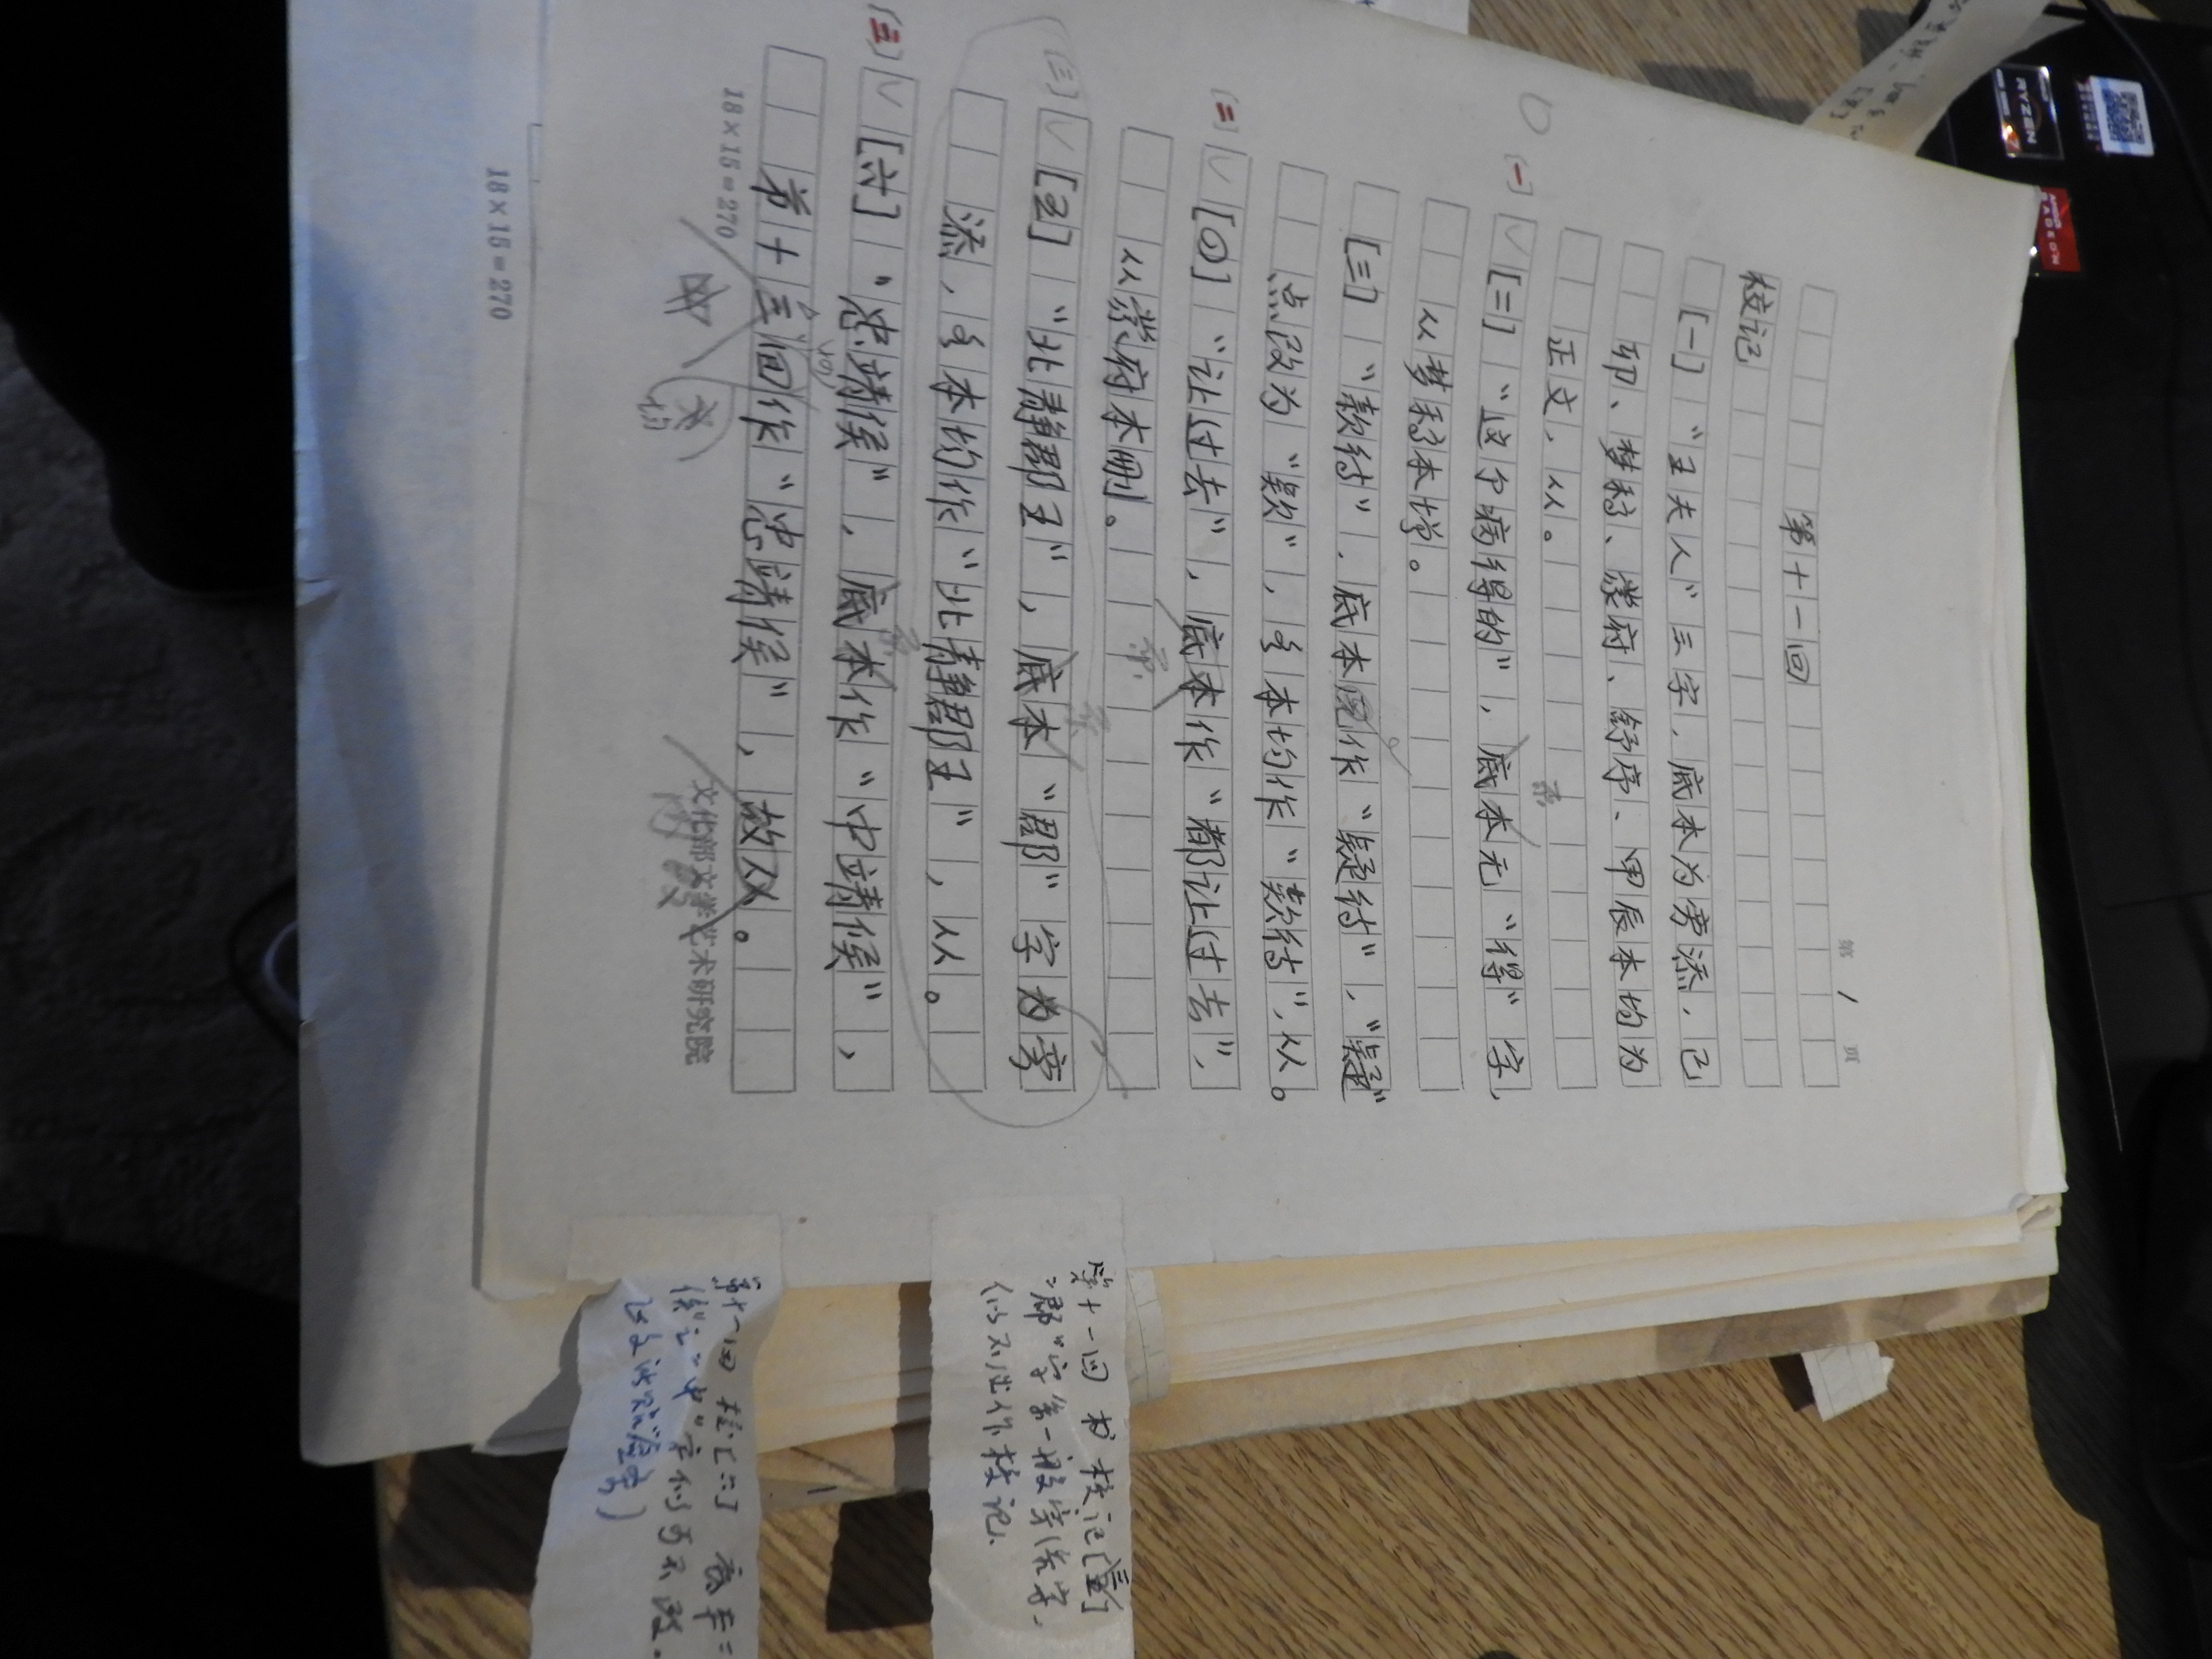 第 1 页
第十一回
校记
[一]“王夫人”三字，底本为旁添，己
卯、梦稿、蒙府、舒序、甲辰本均为
正文，从。
[一]
[二]“这个病得的”，底本无“得”字，
从梦稿本增。
[三]“款待”，底本作“疑待”，“疑”
点改为“款”，各本均作“款待”，从。
[二]
[四]“让过去”，底本作“都让过去”，
从蒙府本删。
[三]
[五]“北静郡王”，底本“郡”字为旁
添，各本均作“北静郡王”，从。
[三]
[六]“忠靖侯”，底本作“中靖候”，
第十三回作“忠靖侯”，故从。
18×15=270
文化部文学艺术研究院
18×15=270
第十一回 校记[五]
“郡”字系一般字，
仍不出作校记。
第十一回 校记[六]
RYZEN
AMD
RADEON